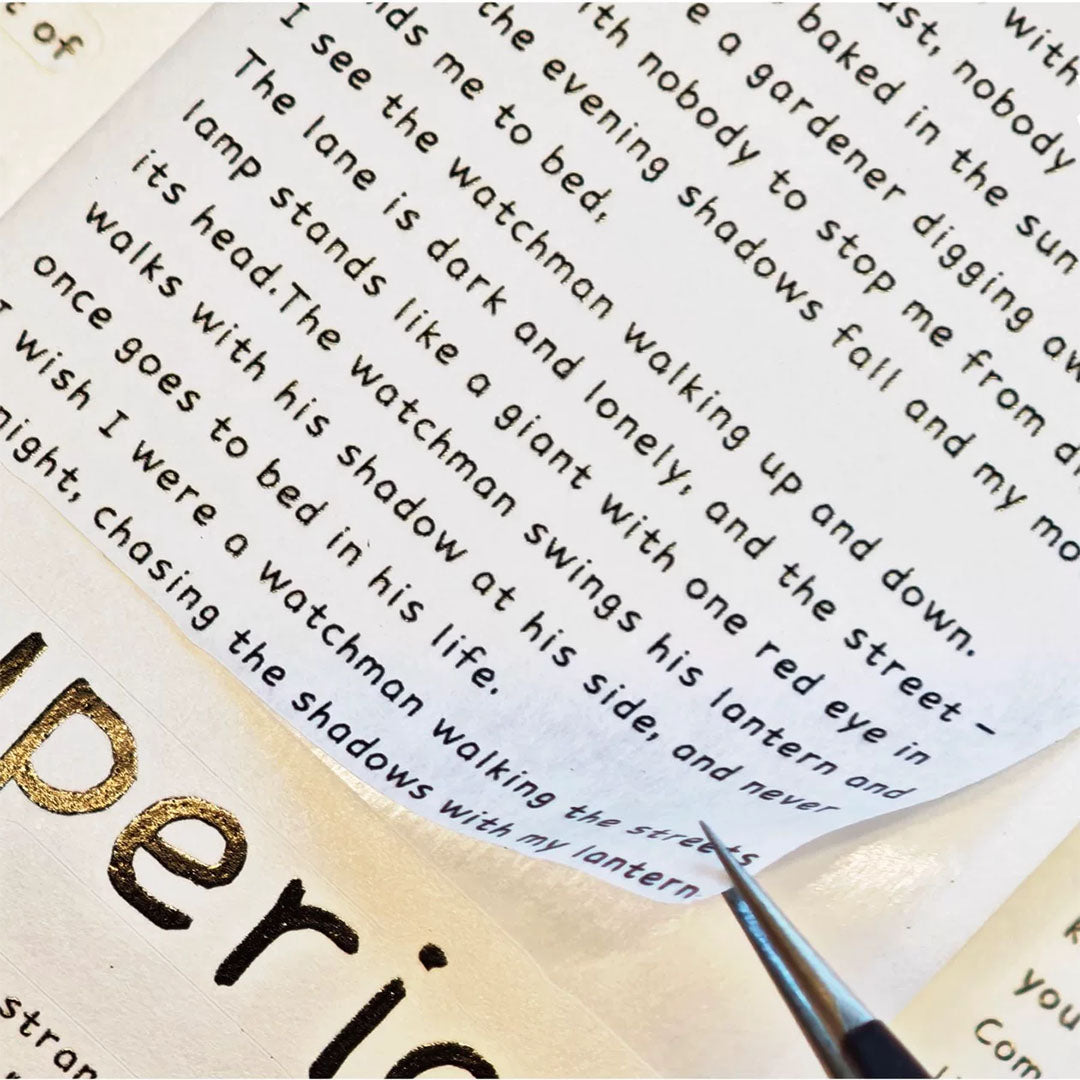 of
with
nobody
baked in the sun
a gardener digging
nobody to stop me from
the evening shadows fall and my
me to bed,
I see the watchman walking up and down.
The lane is dark and lonely, and the street -
lamp stands like a giant with one red eye in
its head.The watchman swings his lantern and
walks with his shadow at his side, and never
once goes to bed in his life.
I wish I were a watchman walking the streets
night, chasing the shadows with my lantern
peri
stran
you
Com